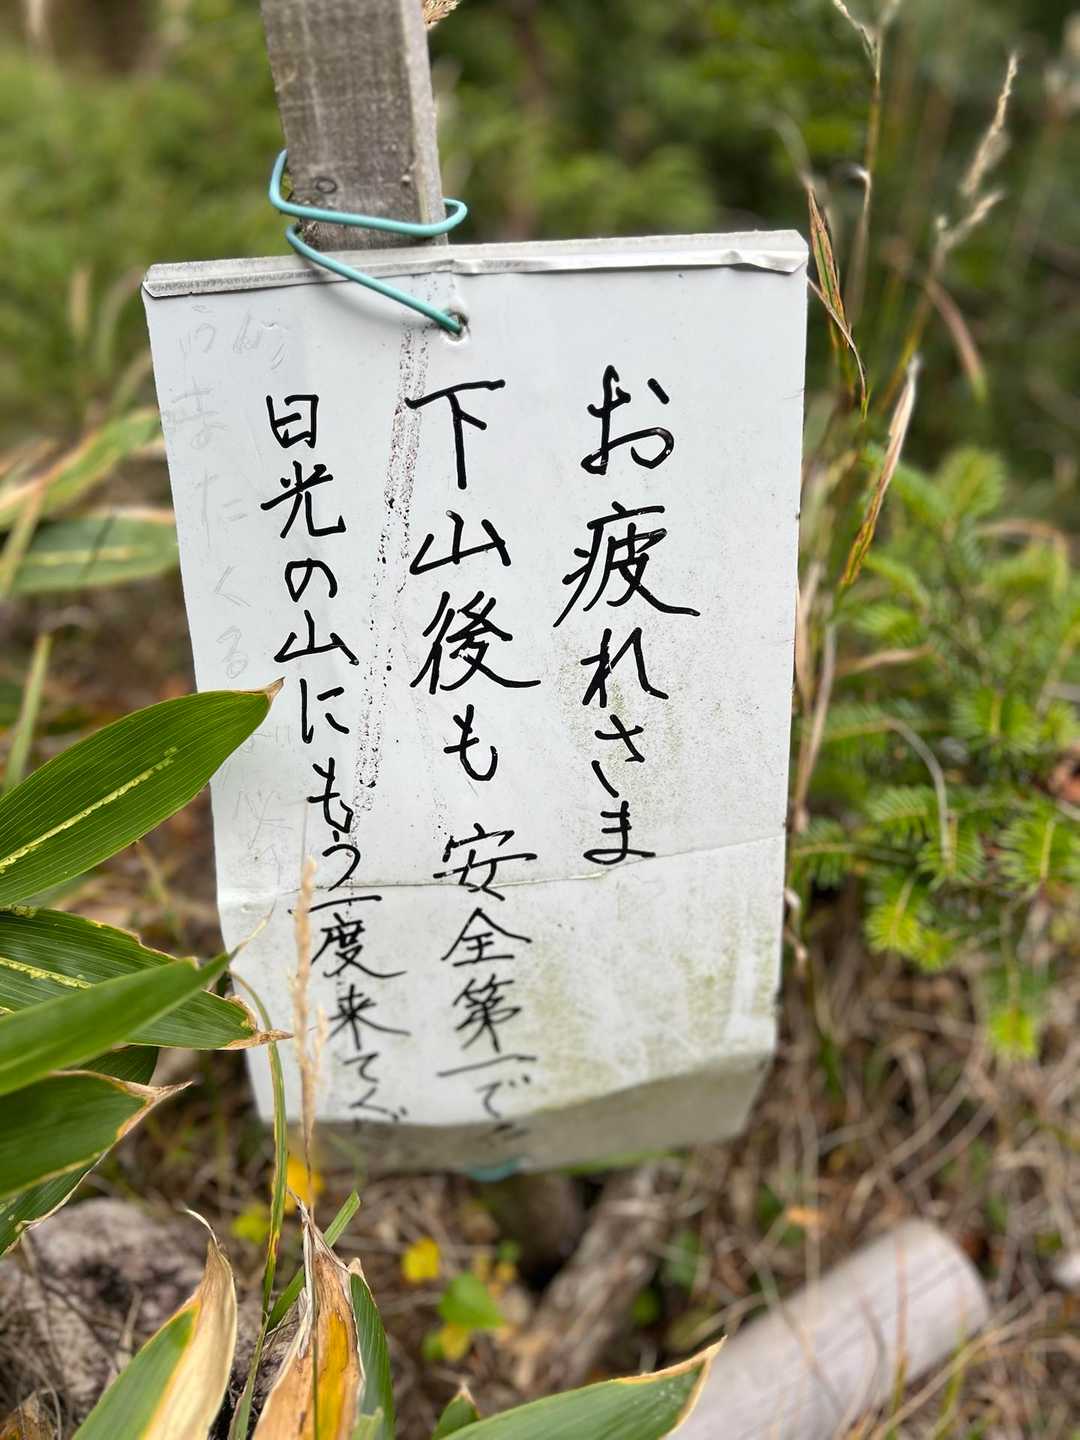 お疲れさま
下山後も 安全第一で
日光の山にもう一度来てく
うまたくる